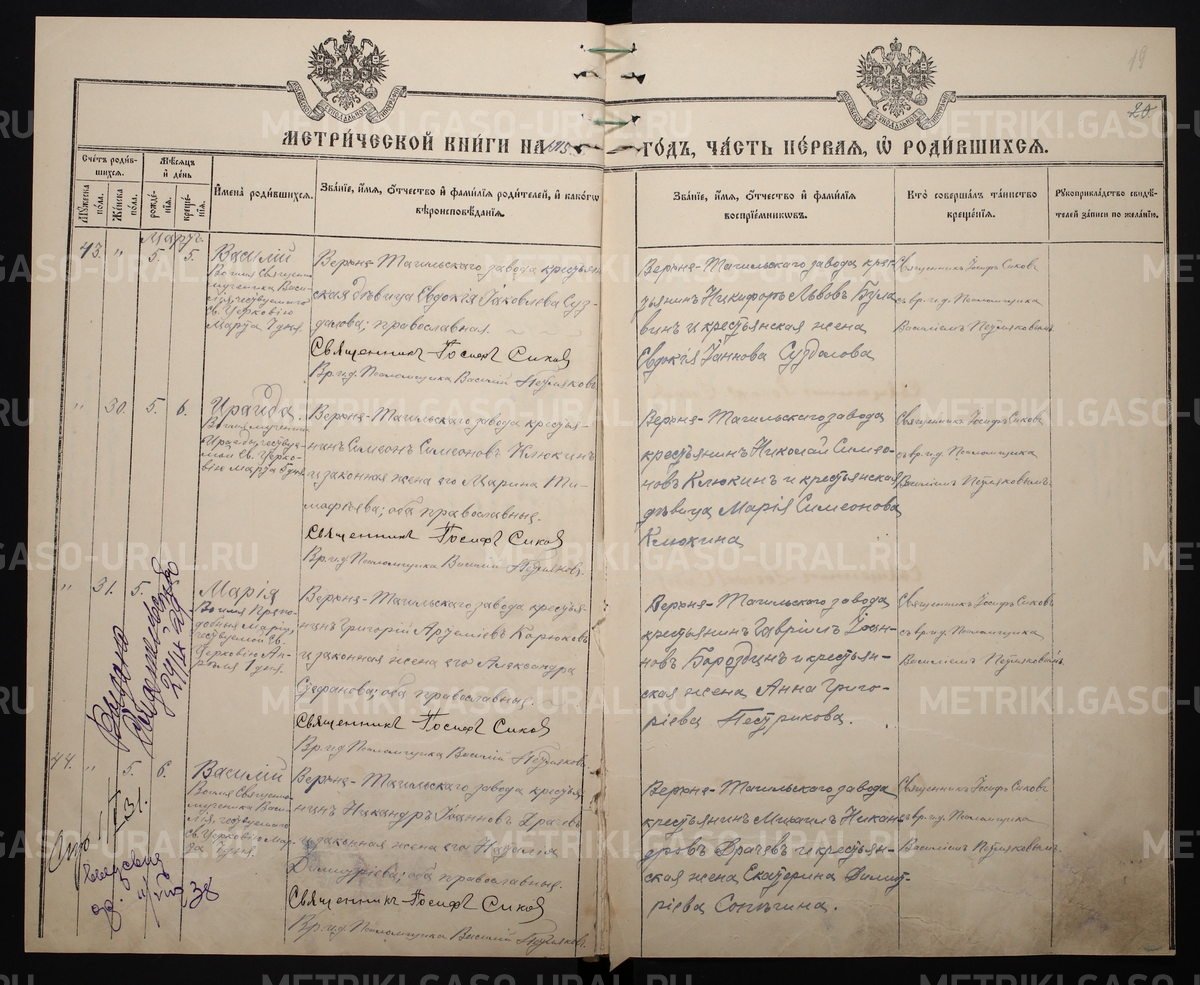 19
20
МЕТРИ́ЧЕСКОЙ КНИ́ГИ НА 1915 ГО́ДЪ, ЧА́СТЬ ПЕ́РВАЯ, Ѡ РОДИ́ВШИХСЯ.
Сче́тъ роди́вшихся.
Мꙋ́жеска по́ла.
Же́нска по́ла.
Мѣ́сяцъ и҆ де́нь
рожде́нїя.
креще́нїя.
И҆мена̀ роди́вшихся.
Зва́нїе, и҆́мя, ѻ҆́тчество и҆ фами́лїя роди́телей, и҆ како́гѡ вѣроисповѣ́данїя.
Зва́нїе, и҆́мя, ѻ҆́тчество и҆ фами́лїя воспрїе́мниковъ.
Кто̀ соверша́лъ та́инство креще́нїя.
Рꙋкоприкла́дство свидѣ́телей за́писи по жела́нїю.
Мартъ
43. " 5. 5.
Василій
Во имя Священно
мученика Васи-
лія, чествуемаго
Св. Церковію
Марта 7 дня.
Верхне-Тагильскаго завода крестьян-
ская дѣвица Евдокія Іаковлева Суз-
далова; православная.
Священникъ Іосифъ Сиковъ
Вр. и. д. Псаломщика Василій
Верхне-Тагильскаго завода крес-
тьянинъ Никифоръ Львовъ Була
винъ и крестьянская жена
Евдокія Іаннова Суздалова
Священникъ Іосифъ Сиковъ
съ вр. и. д. Псаломщика
Василіемъ
" 30. 5. 6.
Ираида.
Во имя мученицы
Ираиды, чествуе-
мой Св. Церко-
вію Марта 5 дня
Верхне-Тагильскаго завода крестья-
нинъ Симеонъ Симеоновъ Клюкинъ
и законная жена его Марина Ти-
мофѣева; оба православные.
Священникъ Іосифъ Сиковъ
Вр. и. д. Псаломщика Василій
Верхне-Тагильскаго завода
крестьянинъ Николай Симео-
новъ Клюкинъ и крестьянская
дѣвица Марія Симеонова
Клюкина
Священникъ Іосифъ Сиковъ
съ вр. и. д. Псаломщика
Василіемъ
" 31. 5.
Марія
Во имя Препо-
добныя Маріи,
чествуемой Св.
Церковію Ап-
рѣля 1 дня.
Верхне-Тагильскаго завода крестья-
нинъ Григорій Артеміевъ Карюковъ
и законная жена его Александра
Стефанова; оба православные.
Священникъ Іосифъ Сиковъ
Вр. и. д. Псаломщика Василій
Верхне-Тагильскаго завода
крестьянинъ Гавріилъ Іоан-
новъ Бороздинъ и крестьян-
ская жена Анна Григо-
ріева Пестрикова.
Священникъ Іосифъ Сиковъ
съ вр. и. д. Псаломщика
Василіемъ
44. " 5. 6.
Василій
Во имя Священно-
мученика Васи-
лія, чествуемаго
Св. Церковію Мар-
та 7 дня.
Верхне-Тагильскаго завода крестья-
нинъ Никандръ Іоанновъ Драчевъ
и законная жена его Наталія
Димитріева; оба православные.
Священникъ Іосифъ Сиковъ
Вр. и. д. Псаломщика Василій
Верхне-Тагильскаго завода
крестьянинъ Михаилъ Никан-
дровъ Драчевъ и крестьян-
ская жена Екатерина Димит-
ріева Сопѣгина.
Священникъ Іосифъ Сиковъ
съ вр. и. д. Псаломщика
Василіемъ
Выдано
31.
38
METRIKI.GASO-URAL.RU